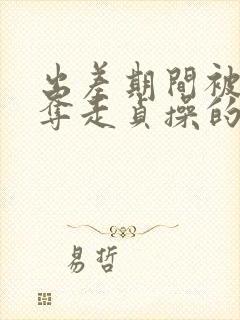 出差期間被
奪走貞操的
易哲